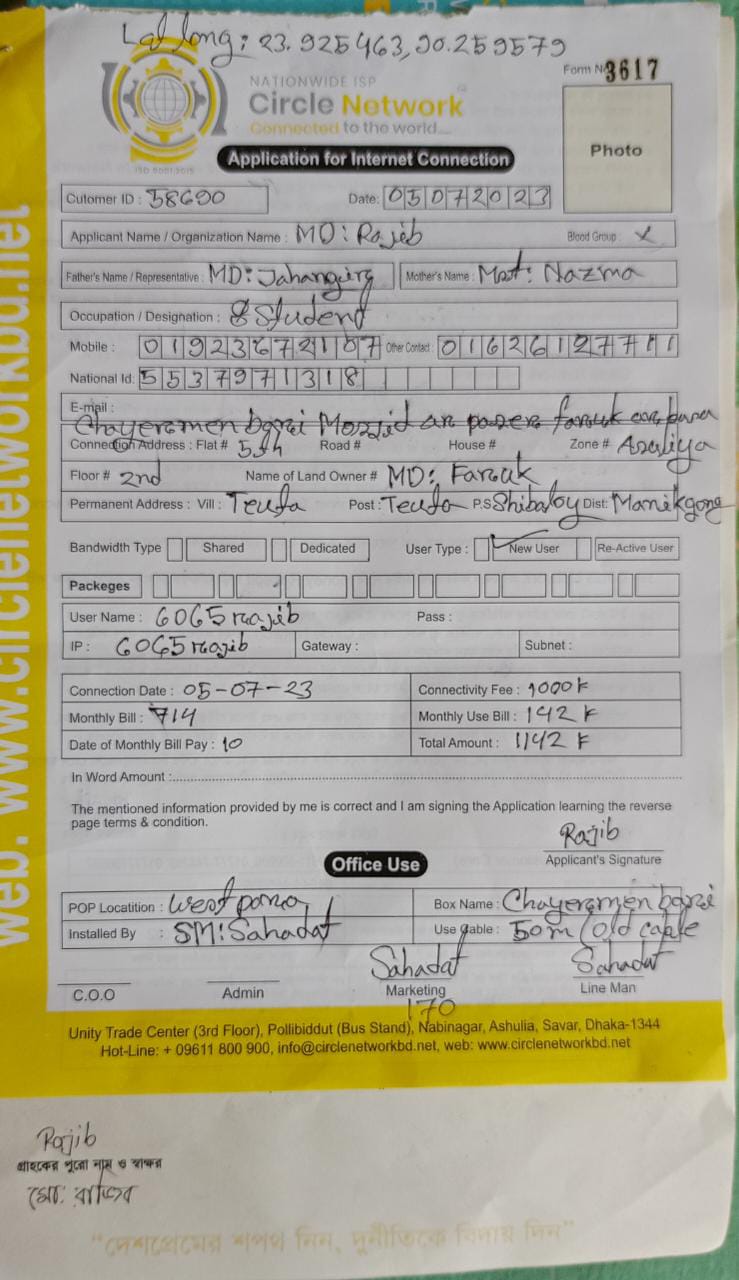 Lat long: 23.925463,90.259579
NATIONWIDE ISP
Circle Network
Connected to the world....
ISO 9001:2015
Form No 3617
Photo
Application for Internet Connection
Cutomer ID : 58690 Date: 05072023
Applicant Name / Organization Name : MD: Rajib Blood Group : X
Father's Name / Representative : MD: Jahangirg Mother's Name : Most: Nazma
Occupation / Designation : Student
Mobile : 01923672107 Other Contact : 01626127711
National Id: 5537971318
E-mail :
Chayeramen bari Mosjid ar paser faruk ar basa
Connection Address : Flat # 5th Road # House # Zone # Asuliya
Floor # 2nd Name of Land Owner # MD: Faruk
Permanent Address : Vill : Teuta Post : Teuta P.S Shibaloy Dist: Manikgong
Bandwidth Type Shared Dedicated User Type : New User Re-Active User
Packeges
User Name : 6065 rajib Pass :
IP : 6065 rajib Gateway : Subnet :
Connection Date : 05-07-23 Connectivity Fee : 1000 k
Monthly Bill : 714 Monthly Use Bill : 142 k
Date of Monthly Bill Pay : 10 Total Amount : 1142 k
In Word Amount :
The mentioned information provided by me is correct and I am signing the Application learning the reverse
page terms & condition.
Rajib
Applicant's Signature
Office Use
POP Locatition : West para Box Name : Chayeramen bari
Installed By : SM: Sahadat Use Cable : 50m (old cable
Sahadat Sahadat
C.O.O Admin Marketing Line Man
170
Unity Trade Center (3rd Floor), Pollibiddut (Bus Stand), Nabinagar, Ashulia, Savar, Dhaka-1344
Hot-Line: + 09611 800 900, info@circlenetworkbd.net, web: www.circlenetworkbd.net
web: www.circlenetworkbd.net
Rajib
গ্রাহকের পুরো নাম ও স্বাক্ষর
মো: রাজিব
"দেশপ্রেমের শপথ নিন, দুর্নীতিকে বিদায় দিন"